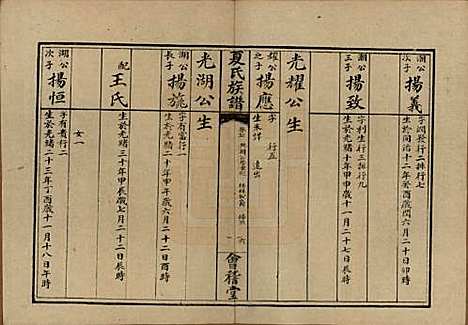 瀰公
次子
揚義
字潤發行二排行七
生於同治十二年癸酉閏六月二十日卯時
瀰公
三子
揚致
字利生行三排行九
生於光緒二十二年 六月二十七日辰時
光耀公生
耀公
之子
揚應
字 行五
生 未詳 遠出
夏氏族譜
會稽堂
光湖公生
湖公
長子
揚旒
字有富行一
生於光緒二十年甲午歲六月二十二日戌時
配
王氏
生於光緒三十年甲辰歲七月二十二日辰時
女一
湖公
次子
揚恒
字有貴行二
生於光緒二十三年丁酉歲十一月十八日午時